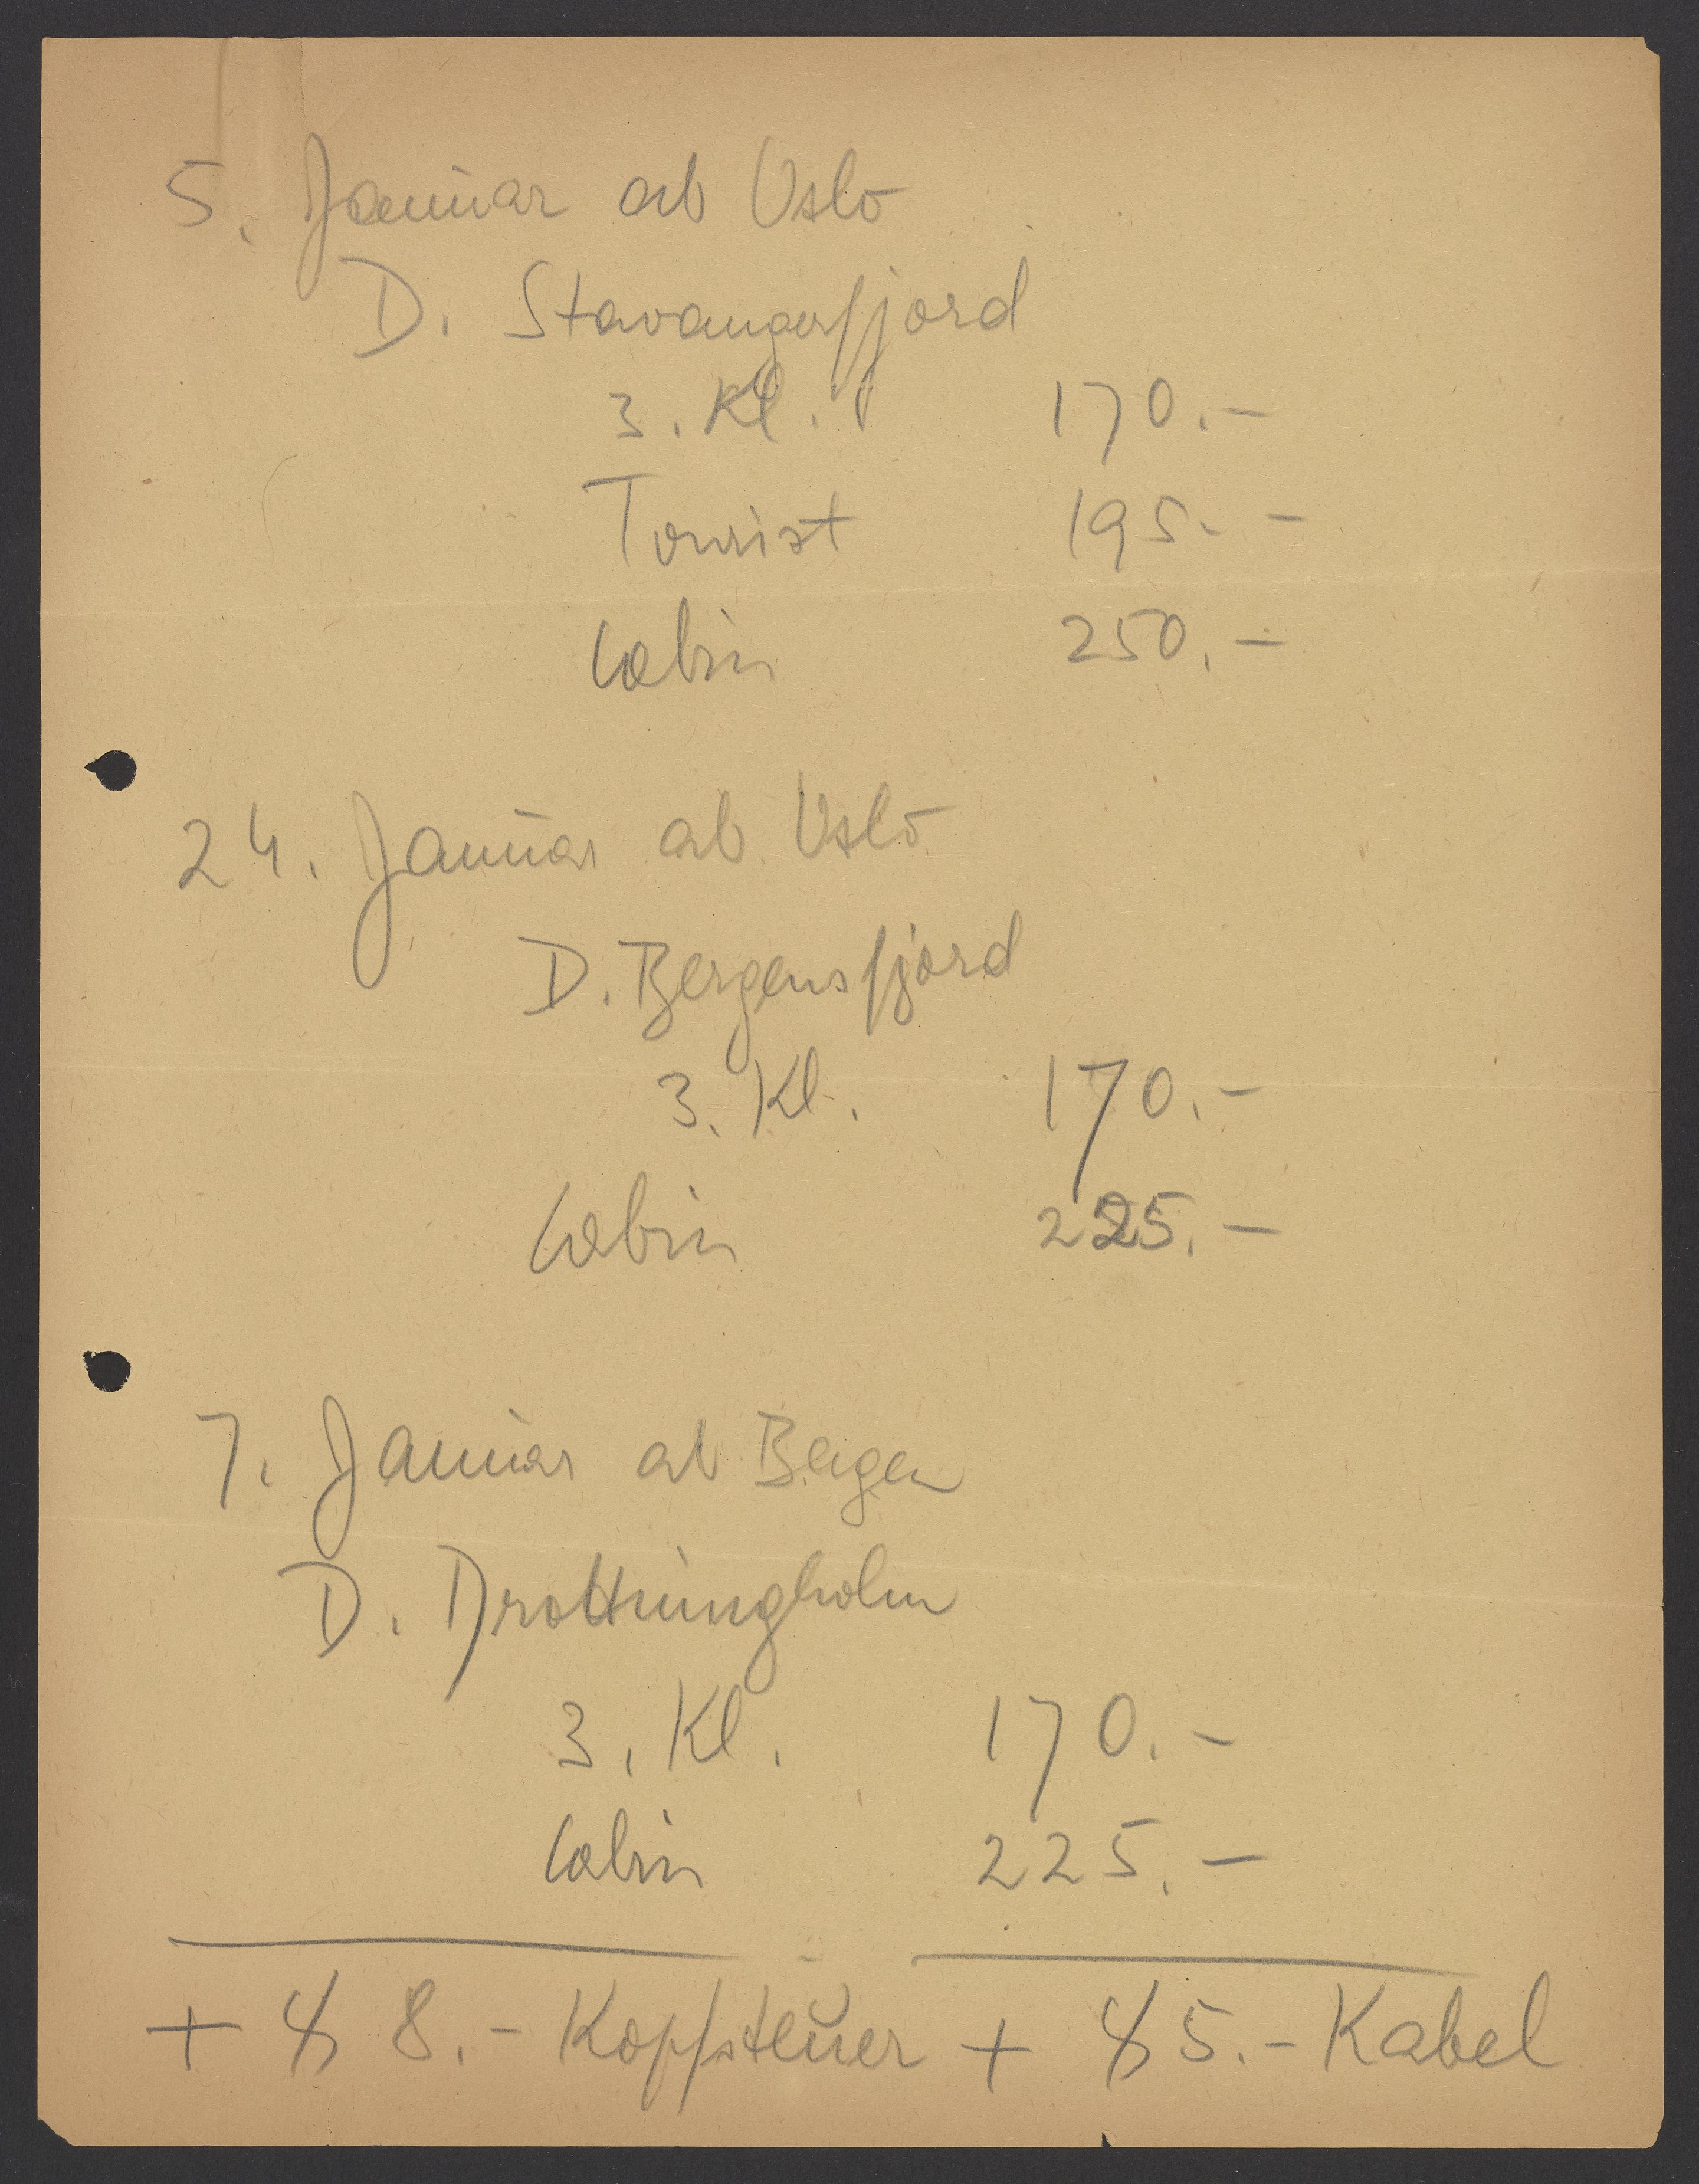 5. Januar ab Oslo
D. Stavangerfjord
3. Kl. 170.-
Tourist 195.-
Cabin 250.-
24. Januar ab Oslo
D. Bergensfjord
3. Kl. 170.-
Cabin 225.-
7. Januar ab Bergen
D. Drottningholm
3. Kl. 170.-
Cabin 225.-
+ $ 8.- Kopfsteuer + $ 5.- Kabel